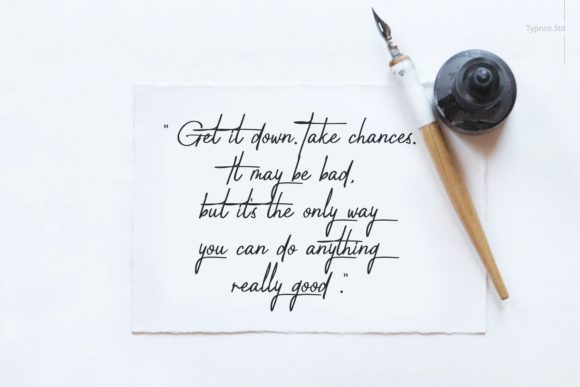 Typnco.Std
" Get it down. Take chances.
It may be bad,
but it's the only way
you can do anything
really good ."